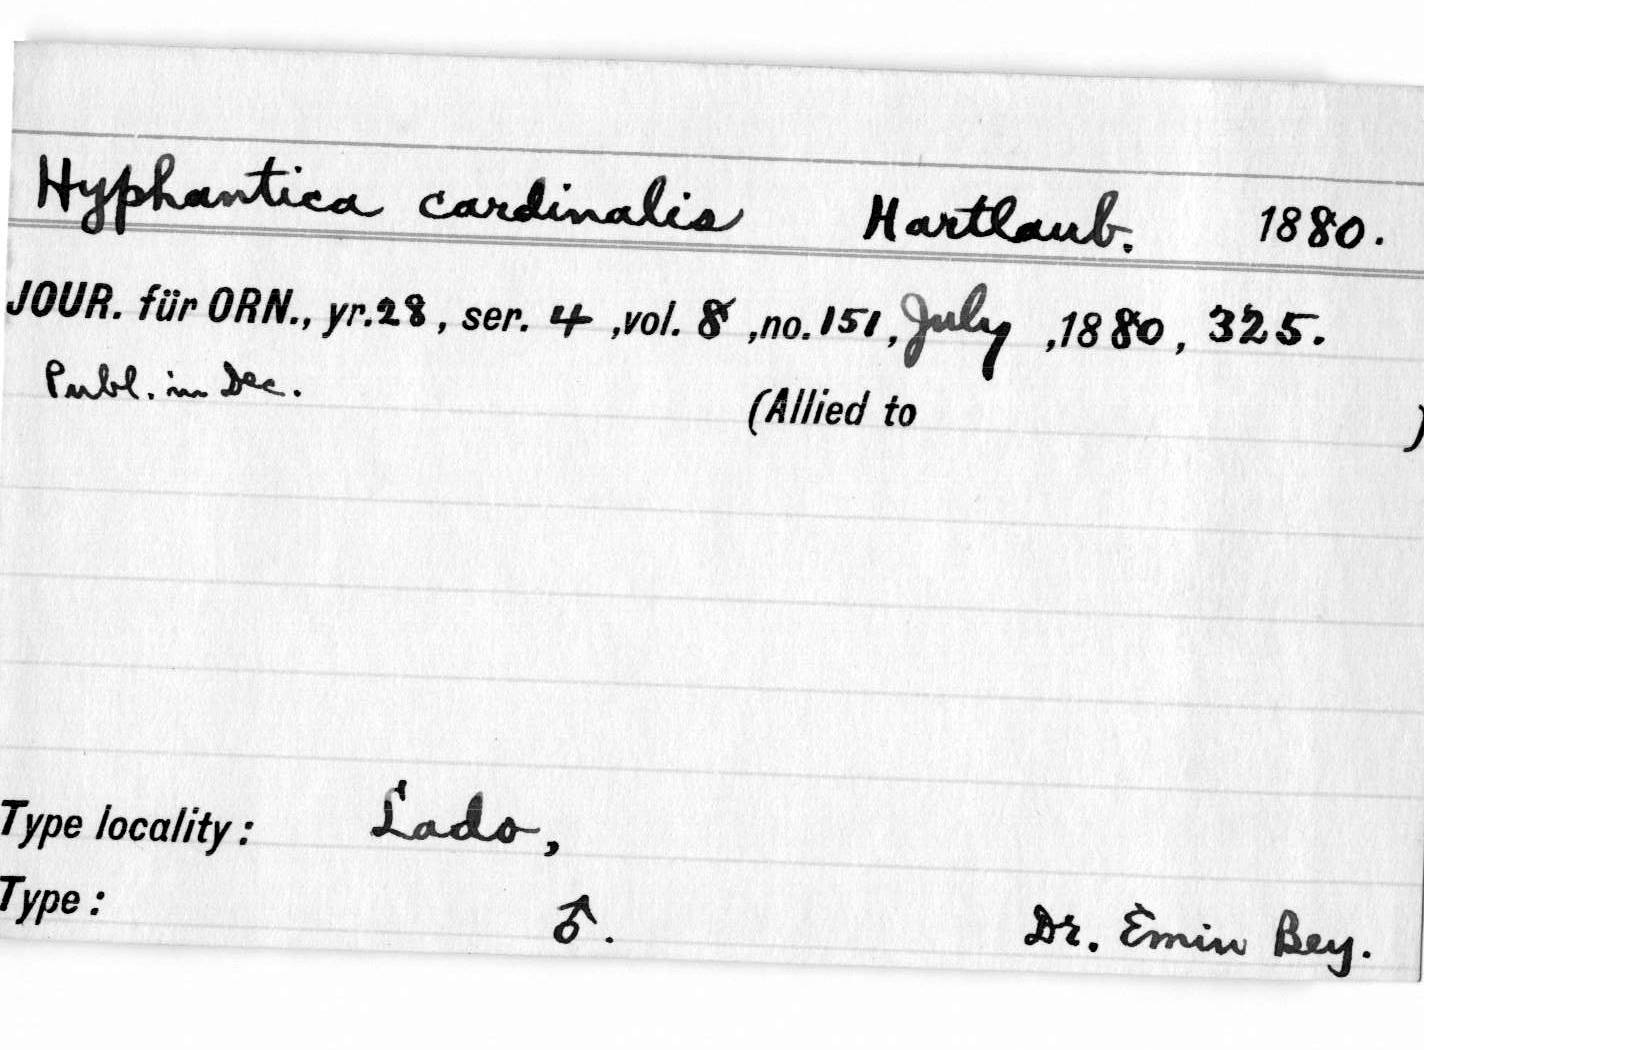 Hyphantica cardinalis Hartlaub. 1880.
JOUR. für ORN., yr.28, ser. 4, vol. 8, no. 151, July, 1880, 325.
Publ. in Dec.
(Allied to )
Type locality: Lado,
Type: ♂. Dr. Emin Bey.